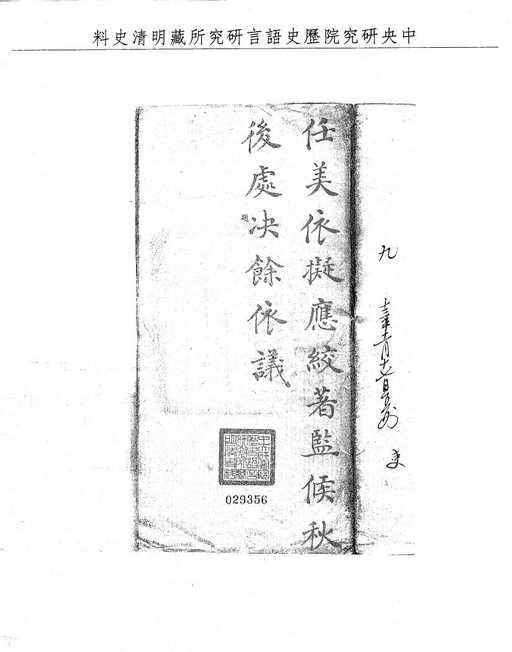 中央研究院歷史語言研究所藏明清史料
任美依擬應絞著監候秋
後處决餘依議
九
029356